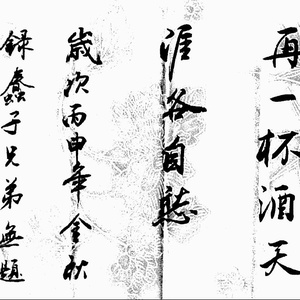 再一杯酒天
涯各自愁
歲次丙申年金秋
録子兄弟無題